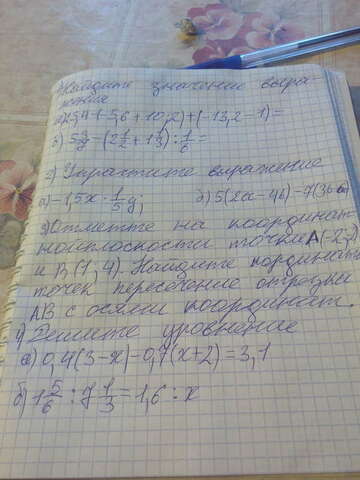 Найдите значение выра-
жения
5,4-(-5,6+10,2)+(-13,2-1)=
2) Упростите выражение
а)-1,5х·1/5у; б)5(2а-4в)-7(3
Отметьте на координат
ной плоскости точки А(-2;
и В(1,4). Найдите координаты
точек пересечение отрезка
АВ с осями координат.
Решите уровнение
а)0,4(3-х)-0,7(х+2)=3,1
б)1 5/6:7 1/3=1,6:х